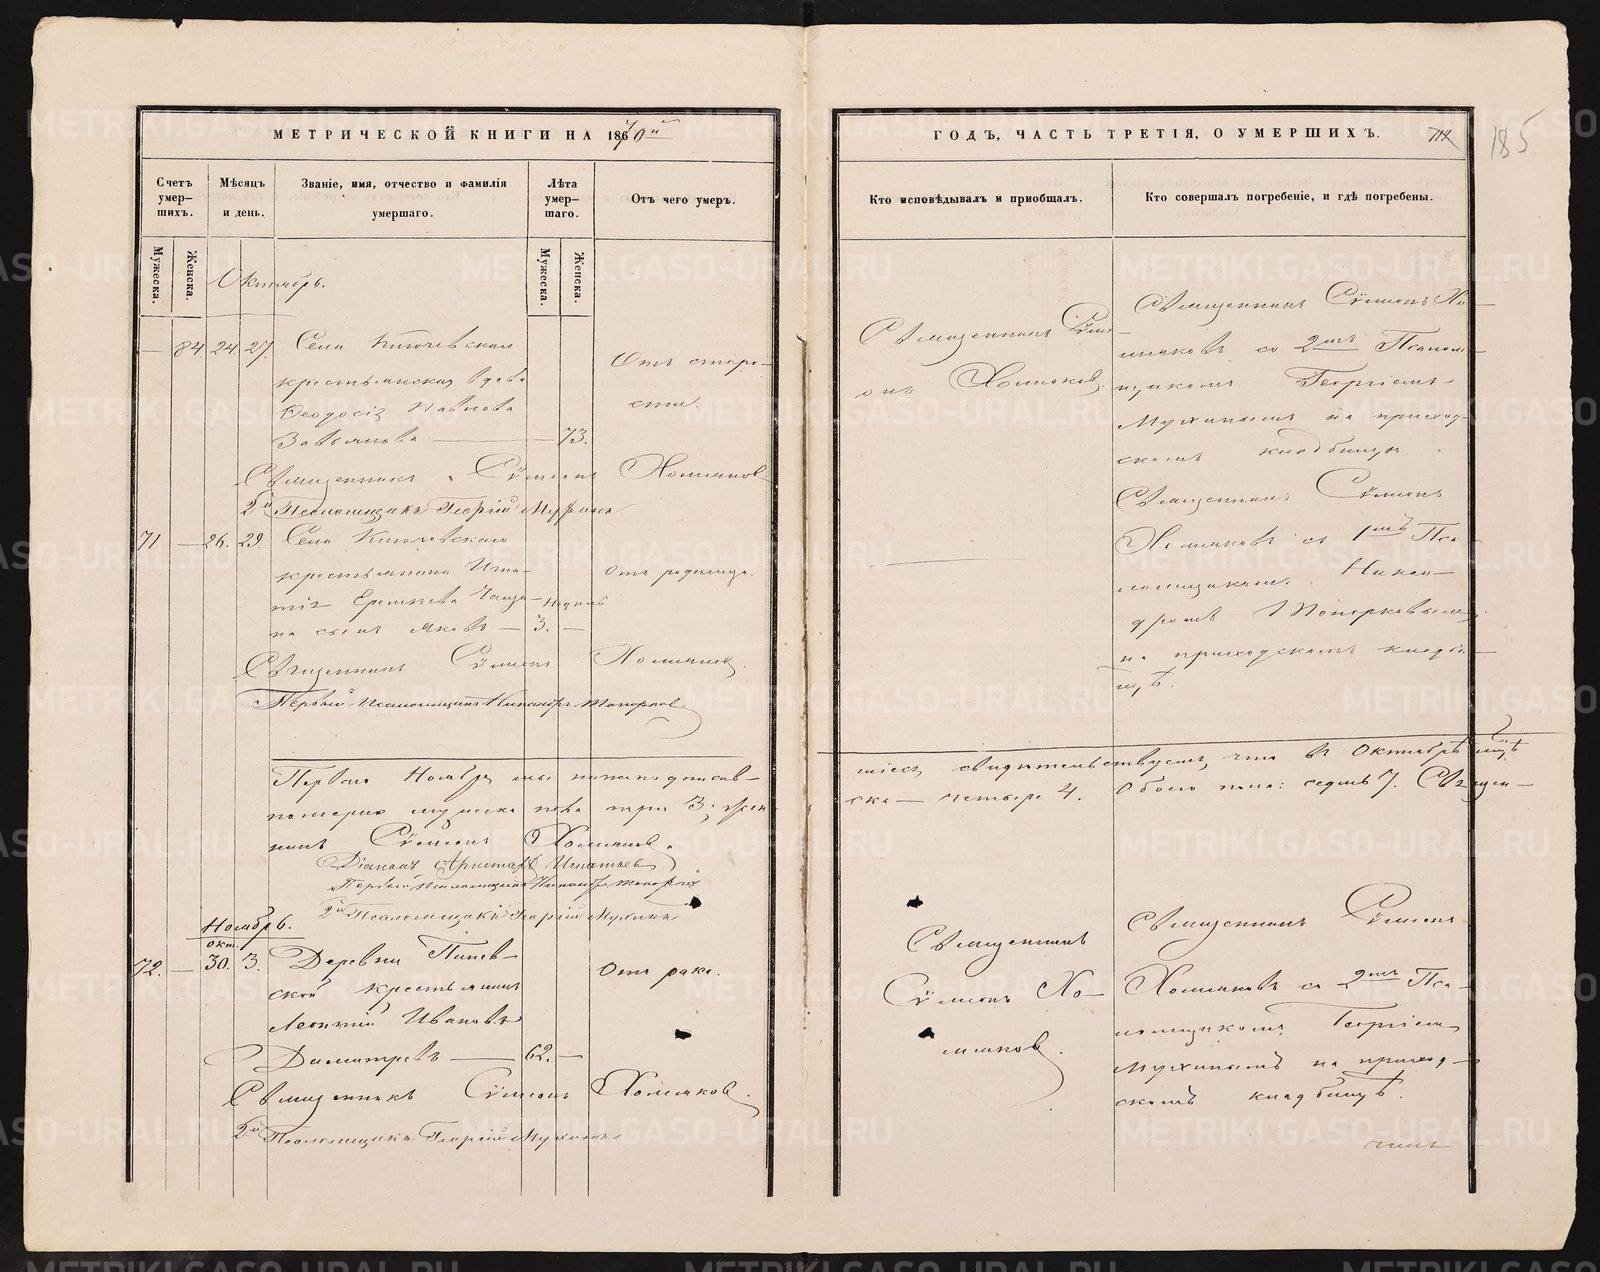 МЕТРИЧЕСКОЙ КНИГИ НА 1870й
ГОДЪ, ЧАСТЬ ТРЕТІЯ, О УМЕРШИХЪ.
185
Счетъ умер-
шихъ.
Мѣсяцъ
и день.
Званіе, имя, отчество и фамилія
умершаго.
Лѣта
умер-
шаго.
Отъ чего умеръ.
Кто исповѣдывалъ и пріобщалъ.
Кто совершалъ погребеніе, и гдѣ погребены.
Мужеска.
Женска.
Мужеска.
Женска.
Октябрь.
— 84 24. 27. Села Ключевскаго
крестьянская вдова
Ѳеодосія Павлова
Завьялова — 73.
Отъ старо-
сти.
Священникъ Сѵме-
онъ Хомяковъ
Священникъ Сѵмеонъ Хо-
мяковъ со 2мъ Псалом-
щикомъ Георгіемъ
Мухинымъ на приход-
скомъ кладбищѣ.
Священникъ Сѵмеонъ Хомяковъ
2й Псаломщикъ Георгій Мухинъ
71 — 26. 29. Села Ключевскаго
крестьянина Игна-
тія
на сынъ Яковъ — 3. —
Недѣль
Отъ родимца.
Священникъ Сѵмеонъ
Хомяковъ съ 1мъ Пса-
ломщикомъ Никан-
дромъ Топорковымъ
на приходскомъ кладби-
щѣ.
Священникъ Сѵмеонъ Хомяковъ.
Первый Псаломщикъ Никандръ Топорковъ
Перваго Ноября мы нижеподписав-
шіеся свидѣтельствуемъ, что въ Октябрѣ мцѣ
померло мужеска пола три 3; жен-
ска — четыре 4. Обоего пола: седмь 7. Священ-
никъ Сѵмеонъ Хомяковъ.
Діаконъ Аристархъ Игнатьевъ
Первый Псаломщикъ Никандръ Топорковъ
2й Псаломщикъ Георгій Мухинъ
Ноябрь.
окт.
72. — 30. 3. Деревни
ской крестьянинъ
Леонтій Ивановъ
Димитревъ — 62. —
Отъ рака.
Священникъ
Сѵмеонъ Хо-
мяковъ.
Священникъ Сѵмеонъ
Хомяковъ со 2мъ Пса-
ломщикомъ Георгіемъ
Мухинымъ на приход-
скомъ кладбищѣ.
Священникъ Сѵмеонъ Хомяковъ.
2й Псаломщикъ Георгій Мухинъ
METRIKI.GASO-URAL.RU